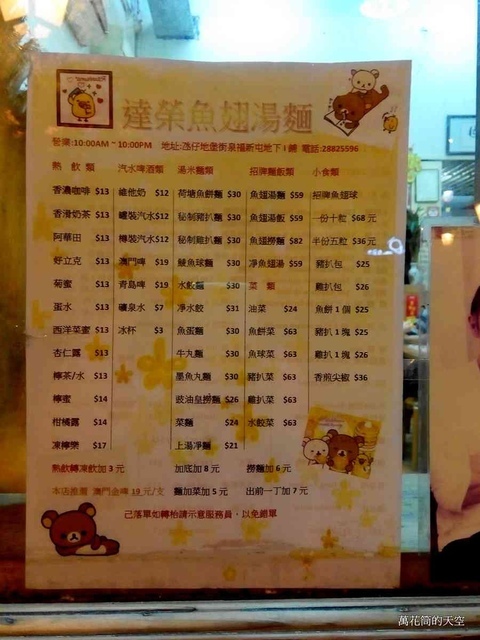 達榮魚翅湯麵
營業:10:00AM ~ 10:00PM 地址:氹仔地堡街泉福新屯地下I鋪 電話:28825596
熱飲類 汽水啤酒類 湯米麵類 招牌麵飯類 小食類
香濃咖啡 $13 維他奶 $12 荷塘魚餅麵 $30 魚翅湯麵 $59 招牌魚翅球
香滑奶茶 $13 罐裝汽水 $12 秘制豬扒麵 $30 魚翅湯飯 $59 一份十粒 $68元
阿華田 $13 樽裝汽水 $12 秘制雞扒麵 $30 魚翅撈麵 $82 半份五粒 $36元
好立克 $13 澳門啤 $19 鯪魚球麵 $30 凈魚翅湯 $59 豬扒包 $25
蜜 $13 青島啤 $19 水餃麵 $30 菜類 雞扒包 $26
蛋水 $13 礦泉水 $7 凈水餃 $31 油菜 $24 魚餅1個 $25
西洋菜蜜 $13 冰杯 $3 魚蛋麵 $30 魚餅菜 $63 豬扒1塊 $25
杏仁露 $13 牛丸麵 $30 魚球菜 $63 雞扒1塊 $26
檸茶/水 $13 墨魚丸麵 $30 豬扒菜 $63 香煎尖椒 $36
檸蜜 $14 豉油皇撈麵 $26 雞扒菜 $63
柑橘露 $14 菜麵 $24 水餃菜 $63
凍檸樂 $17 上湯凈麵 $21
熱飲轉凍飲加3元 加底加8元 撈麵加6元
本店推薦 澳門金啤 19元/支 麵加菜加5元 出前一丁加7元
己落單如轉枱請示意服務員，以免錯單
萬花筒的天空